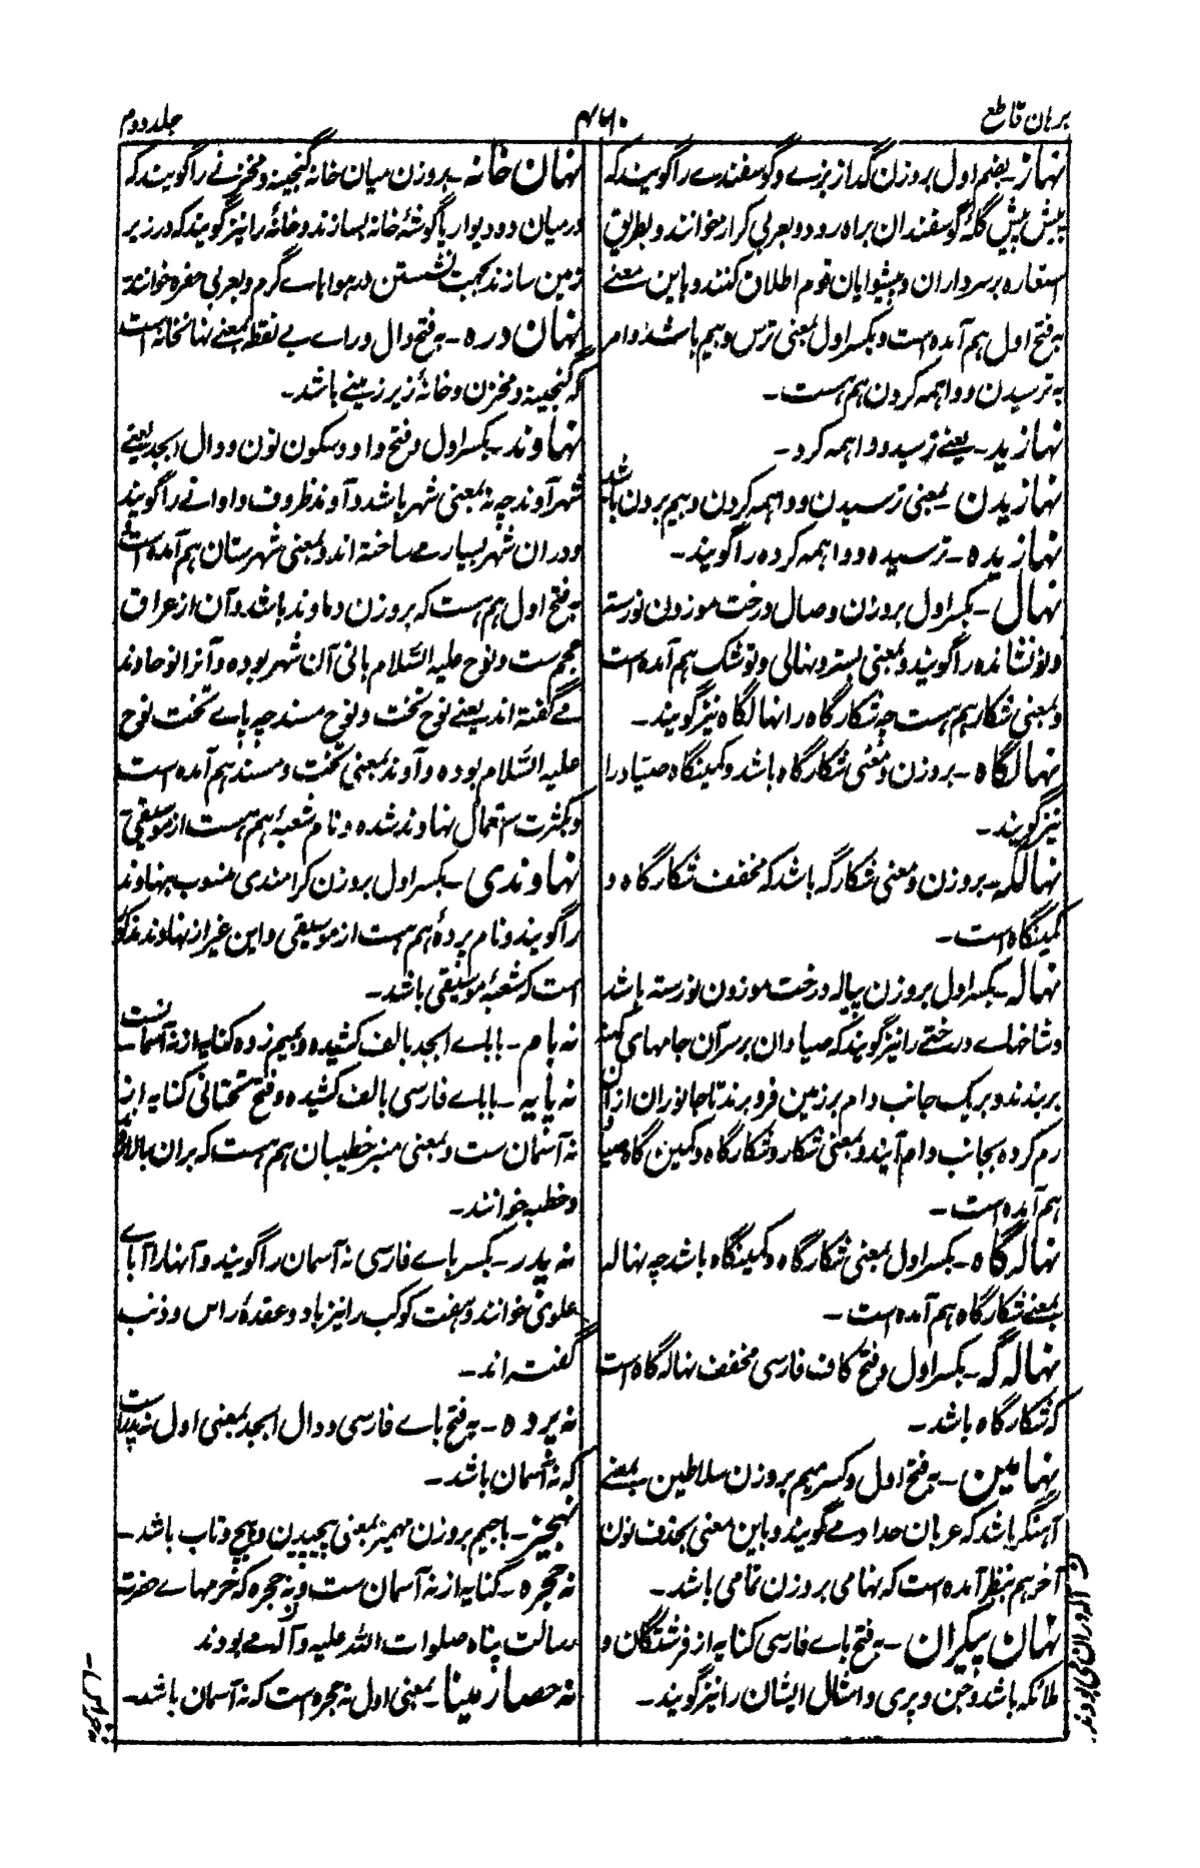 برہان قاطع
۴۷۰
جلد دوم
نہاز۔ بضم اول بروزن گداز بزے و گوسفندے را گویند کہ
پیش پیش گلۂ گوسفندان براہ رود و بعربی کراز خوانند و بطریق
استعارہ بر سرداران و پیشوایان قوم اطلاق کنند و باین معنے
بہ فتح اول ہم آمدہ است و بکسر اول بمعنی ترس و بیم باشد و امر
بہ ترسیدن و واہمہ کردن ہم ہست۔
نہازید۔ یعنے ترسید و واہمہ کرد۔
نہازیدن۔ بمعنی ترسیدن و واہمہ کردن و بیم بردن باشد
نہازیدہ۔ ترسیدہ و واہمہ کردہ را گویند۔
نہال۔ بکسر اول بروزن وصال درخت موزون نورستہ
و نونشاندہ را گویند و بمعنی بستر و نہالی و توشک ہم آمدہ است
و بمعنی شکار ہم ہست چہ شکارگاہ را نہالگاہ نیز گویند۔
نہالگاہ۔ بروزن و معنی شکارگاہ باشد و کمینگاہ صیاد را
نیز گویند۔
نہالگہ۔ بروزن و معنی شکارگہ باشد کہ مخفف شکارگاہ و
کمینگاہ است۔
نہالہ۔ بکسر اول بروزن پیالہ درخت موزون نورستہ باشد
و شاخہاے درختے را نیز گویند کہ صیادان بر سر آن جامہای کہنہ
بربندند و بریک جانب دام بر زمین فرو برند تا جانوران از آن
رم کردہ بجانب دام آیند و بمعنی شکار و شکارگاہ و کمین گاہ صیاد
ہم آمدہ است۔
نہالہ گاہ۔ بکسر اول بمعنی شکارگاہ و کمینگاہ باشد چہ نہالہ
بمعنے شکارگاہ ہم آمدہ است۔
نہالہ گہ۔ بکسر اول و فتح کاف فارسی مخفف نہالہ گاہ است
کہ شکارگاہ باشد۔
نہامین۔ بہ فتح اول و کسر میم بروزن سلاطین بمعنے
آہنگر باشد کہ عربان حداد مے گویند و باین معنی بحذف نون
آخر ہم بنظر آمدہ است کہ نہامی بروزن تمامی باشد۔
نہان پیکران۔ بہ فتح باے فارسی کنایہ از فرشتگان و
ملائکہ باشد و جن و پری و امثال ایشان را نیز گویند۔
نہان خانہ۔ بروزن میان خانہ گنجینہ و مخزنے را گویند کہ
درمیان دو دیوار یا گوشۂ خانہ بسازند و خانۂ را نیز گویند کہ در زیر
زمین سازند بجہت نشستن در ہواہاے گرم و بعربی حفرہ خوانند
نہان درہ۔ بہ فتح دال و راے بے نقطہ بمعنے نہانخانہ است
کہ گنجینہ و مخزن و خانۂ زیر زمینے باشد۔
نہاوند۔ بکسر اول و فتح واو و سکون نون و دال ابجد یعنے
شہر آوند چہ نہ بمعنی شہر باشد و آوند ظروف و اوانے را گویند
و دران شہر بسیارے ساختہ اند و بمعنی شہرستان ہم آمدہ است
بہ فتح اول ہم ہست کہ بروزن دماوند باشد و آن از عراق
عجم ست و نوح علیہ السّلام بانی آن شہر بودہ و آنرا نوحاوند
مے گفتہ اند یعنے نوح تخت و نوح مسند چہ پاے تخت نوح
علیہ السّلام بودہ و آوند بمعنی تخت و مسند ہم آمدہ است
و بکثرت استعمال نہاوند شدہ و نام شعبۂ ہم ہست از موسیقی
نہاوندی۔ بکسر اول بروزن کرامندی منسوب بہ نہاوند
را گویند و نام پردۂ ہم ہست از موسیقی و این غیر از نہاوند مذکور
است کہ شعبۂ موسیقی باشد۔
نہ بام۔ باباے ابجد بالف کشیدہ و بمیم زدہ کنایہ از نہ آسمانست
نہ پایہ۔ باباے فارسی بالف کشیدہ و فتح تحتانی کنایہ از
نہ آسمان ست و بمعنی منبر خطیبان ہم ہست کہ بران بالا روند
و خطبہ خوانند۔
نہ پدر۔ بکسر باے فارسی نہ آسمان را گویند و آنہارا آباے
علوی خوانند و ہفت کوکب را نیز باد و عقدۂ راس و ذنب
گفتہ اند۔
نہ پردہ۔ بہ فتح باے فارسی و دال ابجد بمعنی اول نہ پدر است
کہ نہ آسمان باشد۔
نہجیز۔ باجیم بروزن مہمیز بمعنی پیچیدن و پیچ و تاب باشد۔
نہ حجرہ۔ کنایہ از نہ آسمان ست و نہ حجرہ کہ حرمہاے حضرت
رسالت پناہ صلوات اللہ علیہ و آلہ دران مے بودند
نہ حصار مینا۔ بمعنی اول نہ حجرہ است کہ نہ آسمان باشد۔